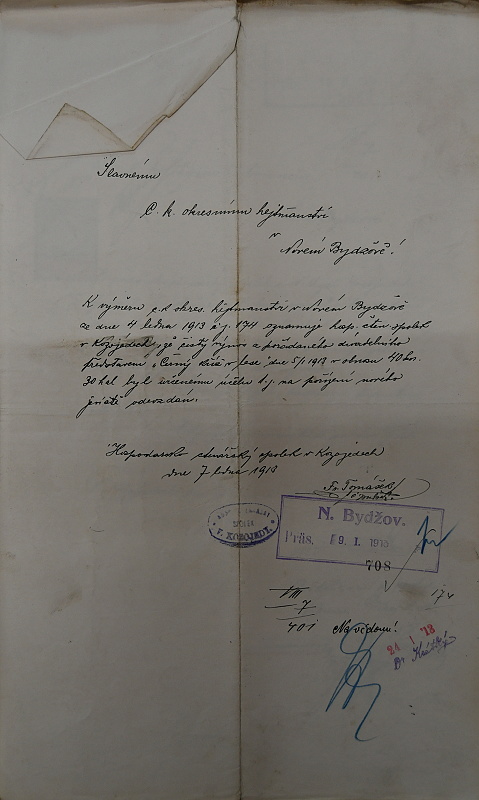 Slavnému
C. k. okresnímu hejtmanství
v
Novém Bydžově!
K výměru c. k. okres. hejtmanství v Novém Bydžově
ze dne 4 ledna 1913 č. j. 174 oznamuje hosp. čten. spolek
v Kozojedech, že čistý výnos z pořádaného divadelního
představení „Černý kříž v lese" dne 5/1 1913 v obnosu 40 kor.
30 hal byl určenému účelu t. j. na pořízení nového
jeviště odevzdán.
Hospodársko čtenářský spolek v Kozojedech
dne 7 ledna 1913
Fr. Tomášek
V KOZOJEDÍ.
N. Bydžov.
Präs. 9. I. 1913
708
174
VIII
7
401 Na vědomí!
24 I '13
Dr